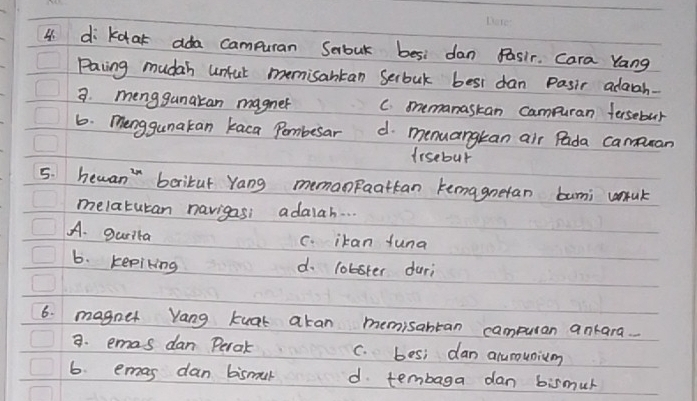 4. di kotak ada campuran Serbuk besi dan Pasir. Cara Yang
Paling mudah untuk memisahkan Serbuk besi dan Pasir adalah-
a. menggunakan magnet c. memanaskan campuran tersebut
b. menggunakan kaca Pembesar d. menuangkan air Pada campuran
trsebut
5. hewan²n berikut Yang memanfaatkan kemagnetan bumi untuk
melakukan navigasi adalah...
A. gurita c. ikan tuna
b. kepiting d. lobster duri
6. magnet Yang kuat akan memisahkan campuran antara...
a. emas dan Perak c. besi dan alumunium
b. emas dan bismut d. tembaga dan bismut